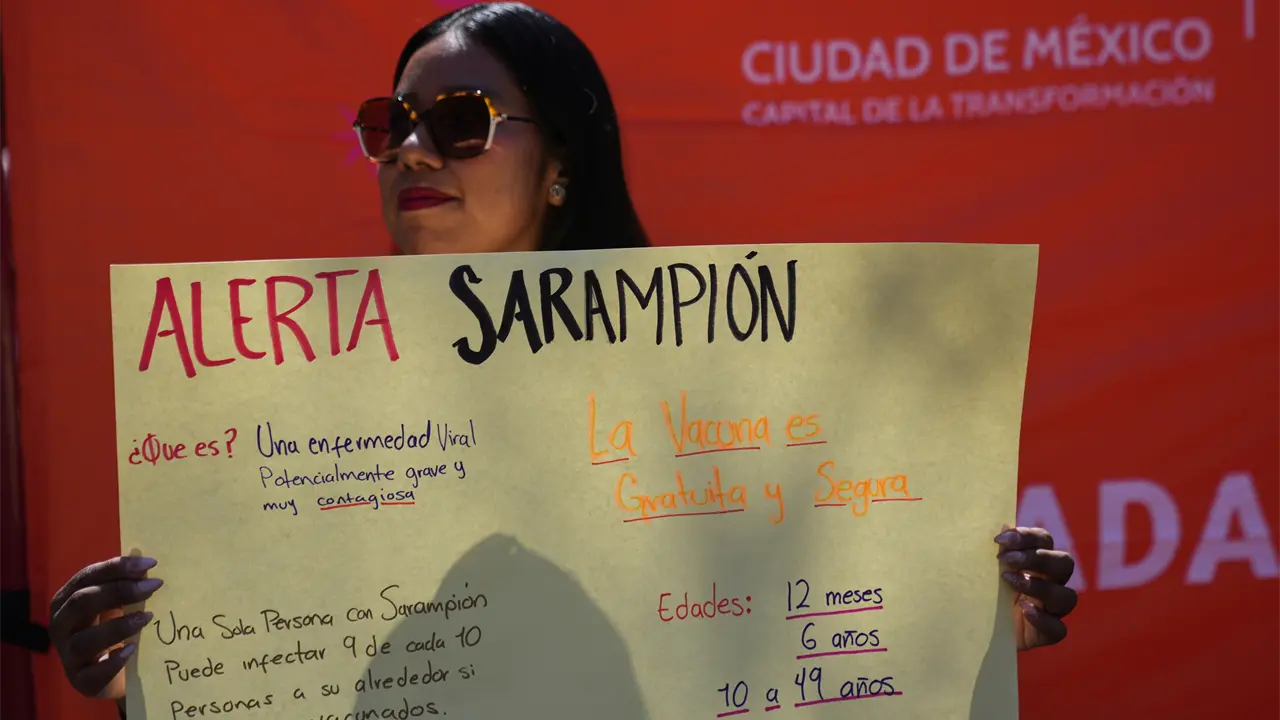 CIUDAD DE MÉXICO
CAPITAL DE LA TRANSFORMACIÓN
ALERTA SARAMPIÓN
¿Que es? Una enfermedad Viral
Potencialmente grave y
muy contagiosa
La Vacuna es
Gratuita y Segura
Una Sola Persona con Sarampión
Puede infectar 9 de cada 10
Personas a su alrededor si
Edades: 12 meses
6 años
10 a 49 años
ADA